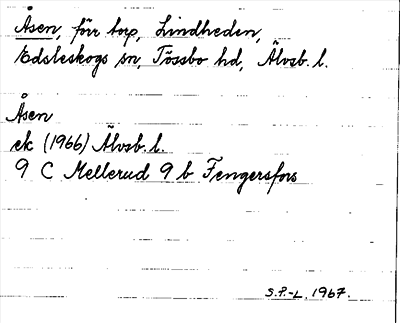 Åsen, förr torp, Lindheden,
Edsleskogs sn, Tössbo hd, Älvsb. l.
Åsen
ek (1966) Älvsb. l.
9 C Mellerud 9 b Fengersfors
S.P.-L. 1967.